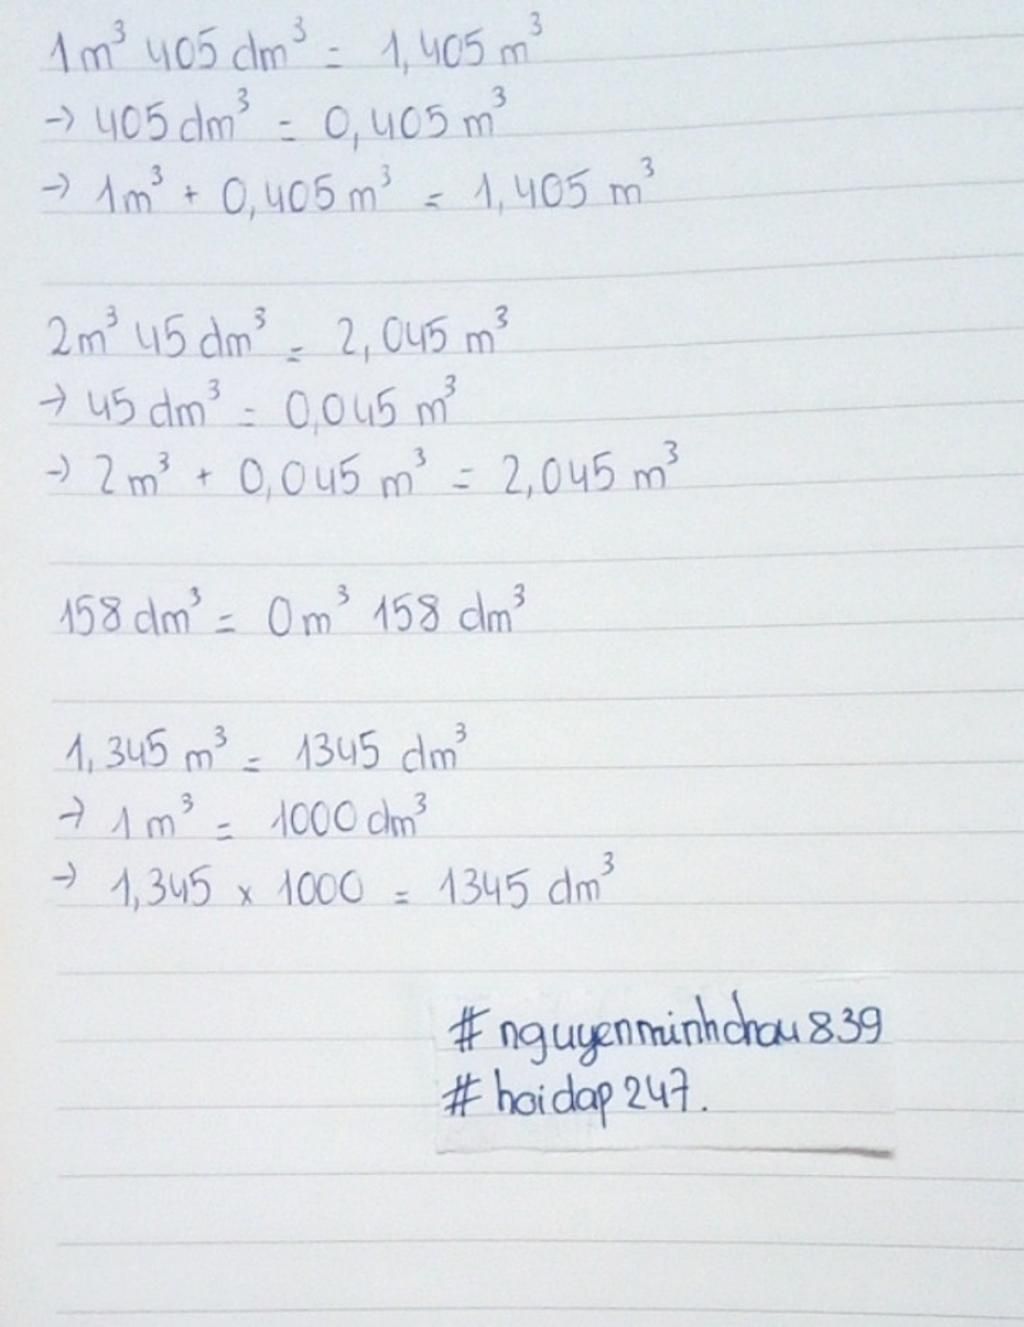 1m³ 405 dm³ = 1,405 m³
→ 405 dm³ = 0,405 m³
→ 1m³ + 0,405 m³ = 1,405 m³
2m³ 45 dm³ = 2,045 m³
→ 45 dm³ = 0,045 m³
→ 2m³ + 0,045 m³ = 2,045 m³
158 dm³ = 0m³ 158 dm³
1,345 m³ = 1345 dm³
→ 1m³ = 1000 dm³
→ 1,345 x 1000 = 1345 dm³
# nguyenminhchau839
# hoidap247.